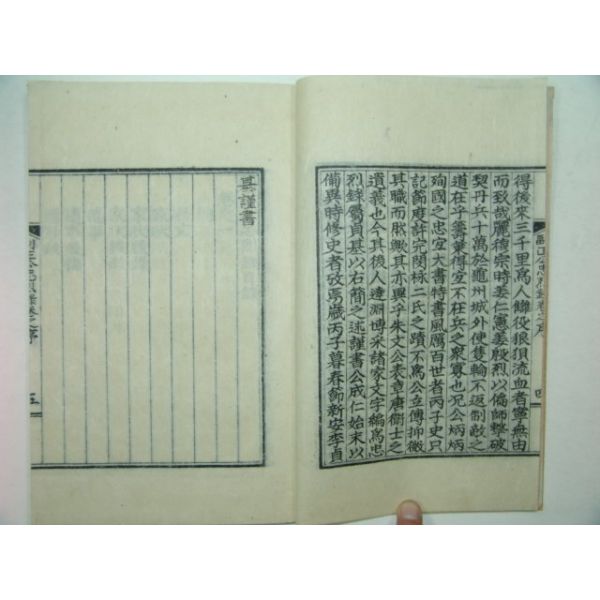 得後來三千里爲人讎役狼狽流血者寧無由
而致哉麗德宗時姜仁憲姜殷烈以偏師擊破
契丹兵十萬於龜州城外使隻輪不返制敵之
道在乎籌華得宜不在兵之衆寡也況公炳炳
殉國之忠宜大書特書風厲百世者丙子史只
記節度許完閔栐二氏之蹟不爲公立傳抑微
其職而然歟其亦異乎朱文公表章唐衛士之
遺義也今其後人達淵博采諸家文字編爲忠
烈錄屬貞基以右簡之述謹書公成仁始末以
備異時修史者攷焉歲丙子暮春節新安李貞
四
基謹書
五